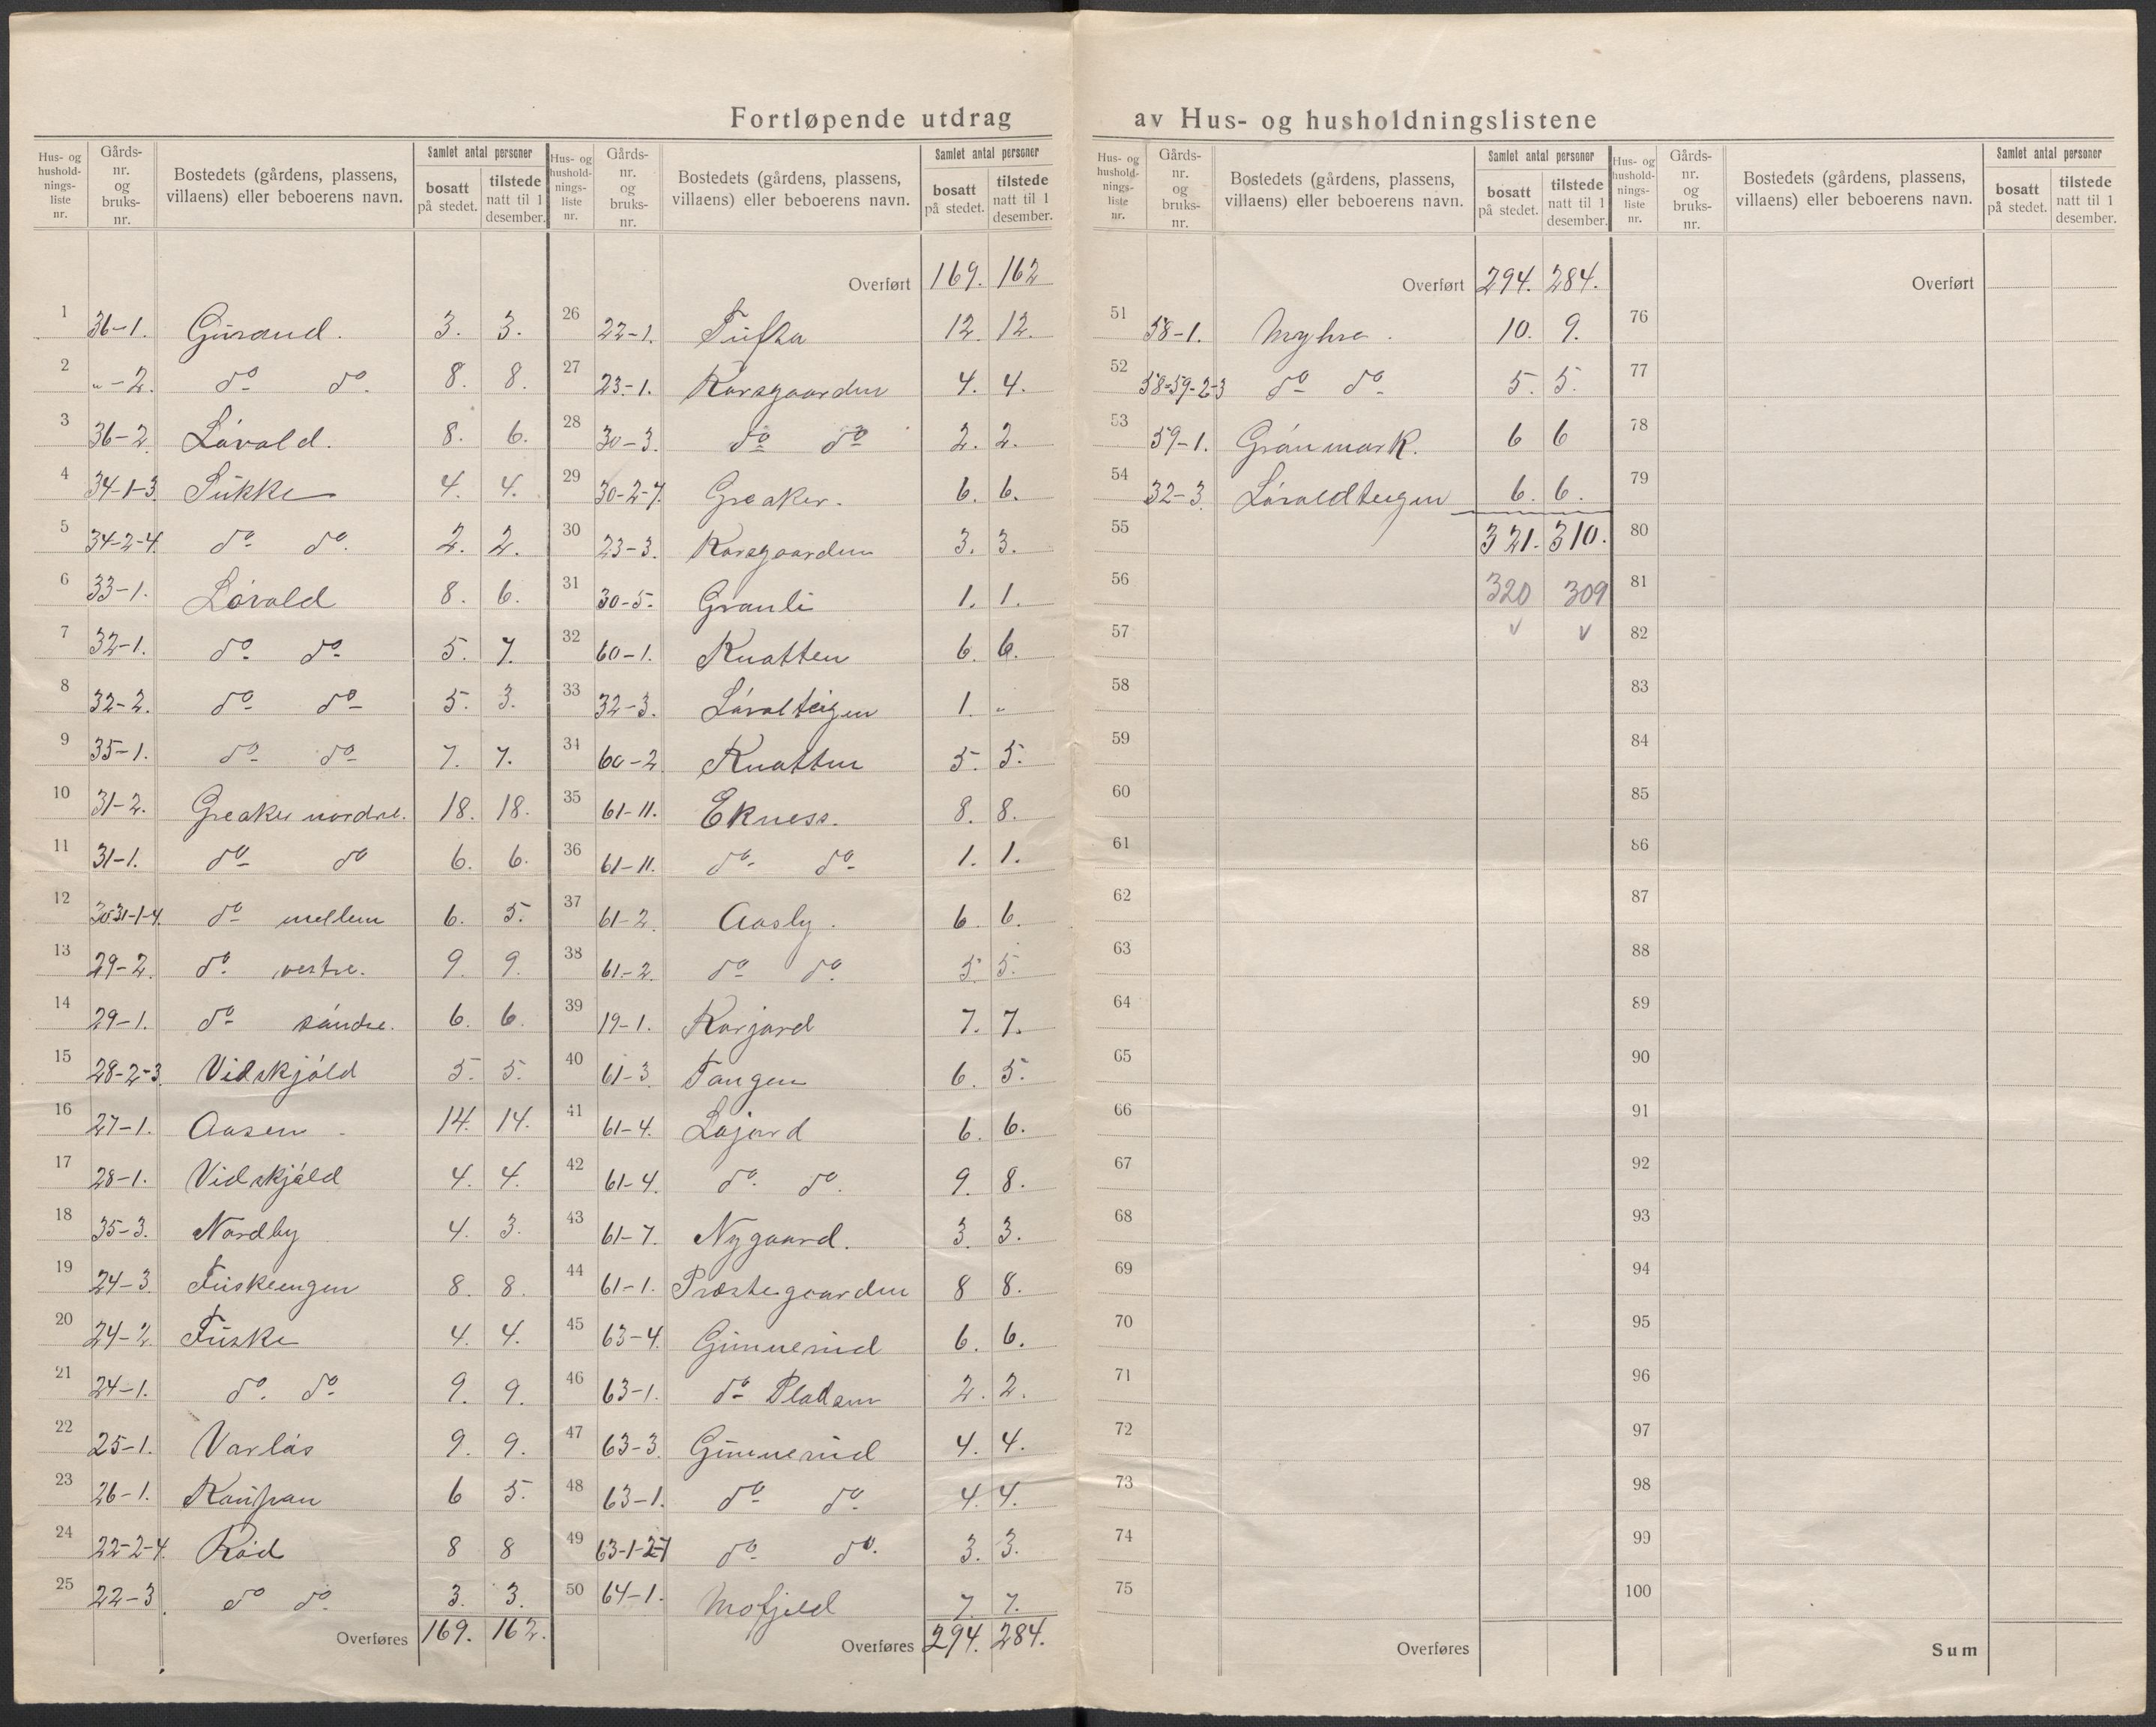 Fortløpende utdrag av Hus- og husholdningslistene
Hus- og husholdningsliste nr. | Gårds-nr. og bruks-nr. | Bostedets (gårdens, plassens, villaens) eller beboerens navn. | Samlet antal personer | bosatt på stedet. | tilstede natt til 1 desember.
1 36-1. Gurand. 3. 3.
2 „-2. do do. 8. 8.
3 36-2 Lóvald. 8. 6.
4 34-1-3. Sukke 4. 4.
5 34-2-4. do do. 2. 2.
6 33-1. Lóvald 8. 6.
7 32-1. do do 5. 7.
8 32-2. do do 5. 3.
9 35-1. do do 7. 7.
10 31-2. Greaker nordre. 18. 18.
11 31-1. do do 6. 6.
12 30-31-1-4. do mellem 6. 5.
13 29-2. do vestre. 9. 9.
14 29-1. do søndre. 6. 6.
15 28-2-3. Vidskjóld 5. 5.
16 27-1. Aasen 14. 14.
17 28-1. Vidskjóld 4. 4.
18 35-3. Nordby 4. 3.
19 24-3. Fuskeengen 8. 8.
20 24-2. Fuske 4. 4.
21 24-1. do. do 9. 9.
22 25-1. Varlós 9. 9.
23 26-1. 6 5.
24 22-2-4. Ród 8 8
25 22-3. do do. 3. 3.
Overføres 169. 162.
Hus- og husholdningsliste nr. | Gårds-nr. og bruks-nr. | Bostedets (gårdens, plassens, villaens) eller beboerens navn. | Samlet antal personer | bosatt på stedet. | tilstede natt til 1 desember.
Overført 169. 162
26 22-1. 12. 12.
27 23-1. Korsgaarden 4. 4.
28 30-3. do do 2. 2.
29 30-2-7. Greaker. 6. 6.
30 23-3. Korsgaarden 3. 3.
31 30-5. Granli 1. 1.
32 60-1. Knatten 6. 6.
33 32-3. Lóvalteigen 1. „
34 60-2. Knatten 5. 5.
35 61-11. Ekness. 8. 8.
36 61-11. do. do. 1. 1.
37 61-2. Aasly. 6. 6.
38 61-2. do do. 5. 5.
39 19-1. Korjord 7. 7.
40 61-3. Tangen 6. 5.
41 61-4. Lojord 6. 6.
42 61-4. do. do. 9. 8.
43 61-7. Nygaard. 3. 3.
44 61-1. Præstegaarden 8 8.
45 63-4. Gunnerud 6. 6.
46 63-1. do Pladsen 2. 2.
47 63-3. Gunnerud 4. 4.
48 63-1. do do. 4. 4.
49 63-1-2-7 do do. 3. 3.
50 64-1. Mofjeld 7. 7.
Overføres 294. 284.
Hus- og husholdningsliste nr. | Gårds-nr. og bruks-nr. | Bostedets (gårdens, plassens, villaens) eller beboerens navn. | Samlet antal personer | bosatt på stedet. | tilstede natt til 1 desember.
Overført 294. 284.
51 58-1. Myhre. 10. 9.
52 58-59-2-3 do do 5. 5.
53 59-1. Grónmark. 6 6
54 32-3. Lóvaldteigen 6. 6.
55 321. 310.
56 320 309
57 v v
58
59
60
61
62
63
64
65
66
67
68
69
70
71
72
73
74
75
Overføres
Hus- og husholdningsliste nr. | Gårds-nr. og bruks-nr. | Bostedets (gårdens, plassens, villaens) eller beboerens navn. | Samlet antal personer | bosatt på stedet. | tilstede natt til 1 desember.
Overført
76
77
78
79
80
81
82
83
84
85
86
87
88
89
90
91
92
93
94
95
96
97
98
99
100
Sum